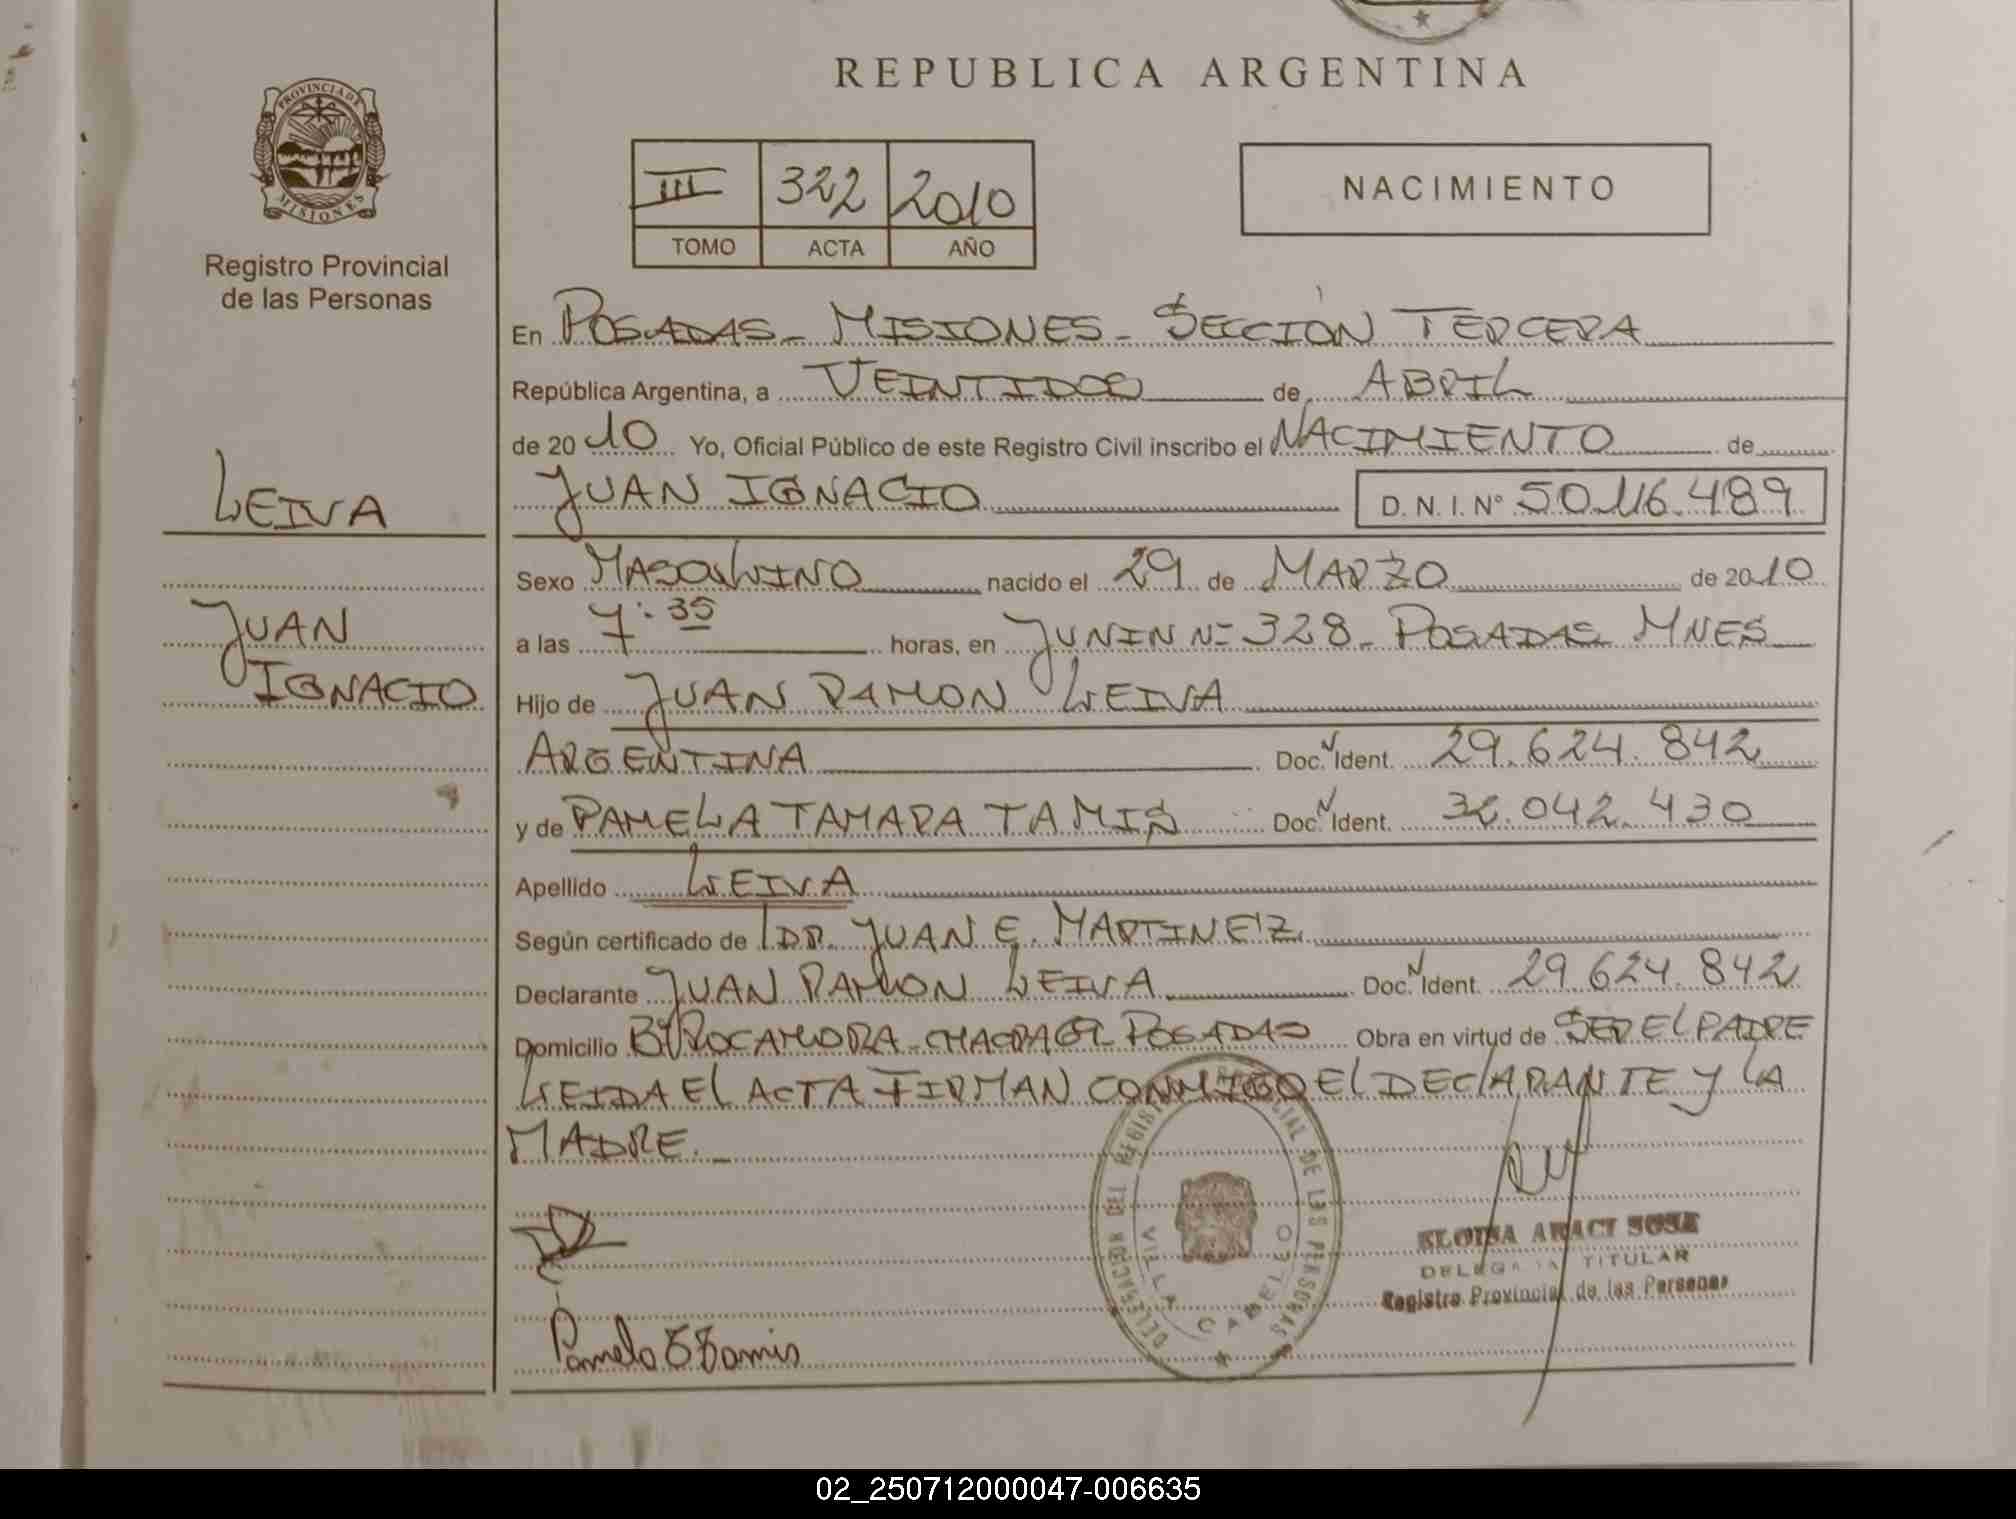 REPUBLICA ARGENTINA
PROVINCIA DE
MISIONES
Registro Provincial
de las Personas
III 322 2010
TOMO ACTA AÑO
NACIMIENTO
En POSADAS - MISIONES - SECCIÓN TERCERA
República Argentina, a VEINTIDOS de ABRIL
de 2010 Yo, Oficial Público de este Registro Civil inscribo el NACIMIENTO de
LEIVA
JUAN IGNACIO D. N. I. N° 50.116.489
Sexo MASCULINO nacido el 29 de MARZO de 2010
JUAN
a las 7:35 horas, en JUNIN N° 328 - POSADAS MNES
IGNACIO
Hijo de JUAN RAMON LEIVA
ARGENTINA Doc. N Ident. 29.624.842
y de PAMELA TAMARA TAMIS Doc. N Ident. 042.430
Apellido LEIVA
Según certificado de DR. JUAN E. MARTINEZ
Declarante JUAN RAMON LEIVA Doc. N Ident. 29.624.842
Domicilio Bº ROCAMORA - CHACRA POSADAS Obra en virtud de SER EL PADRE
LEIDA EL ACTA FIRMAN CONMIGO EL DECLARANTE Y LA
MADRE. -
DELEGACION DEL REGISTRO PROVINCIAL DE LAS PERSONAS
VILLA CABELLO
ELOISA ARACI SOSA
DELEGADA TITULAR
Registro Provincial de las Personas
Pamela T Tamis
02_250712000047-006635